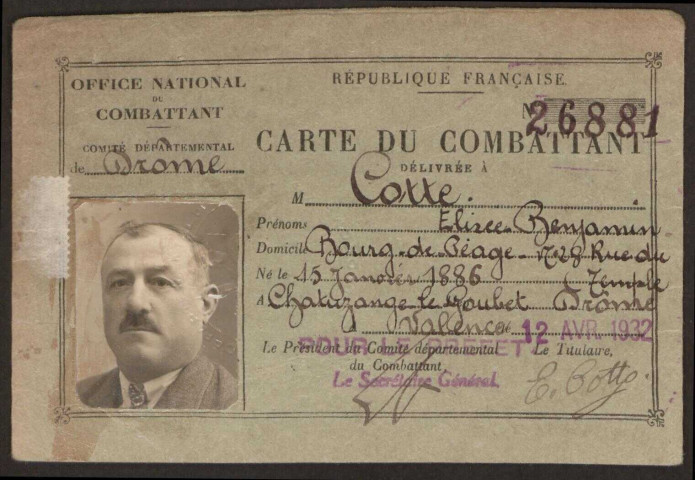 OFFICE NATIONAL
DU
COMBATTANT
COMITÉ DÉPARTEMENTAL
de Drôme
RÉPUBLIQUE FRANÇAISE
N° 26881
CARTE DU COMBATTANT
DÉLIVRÉE À
M Cotte.
Prénoms Elisée Benjamin
Domicile Bourg-de-Péage - N°28 Rue du
Temple
Né le 15 Janvier 1886
A Chatuzange-le-Goubet Drôme
A Valence 12 AVR 1932
POUR LE PRÉFET
Le Président du Comité départemental
du Combattant,
Le Secrétaire Général,
Le Titulaire,
E. Cotte